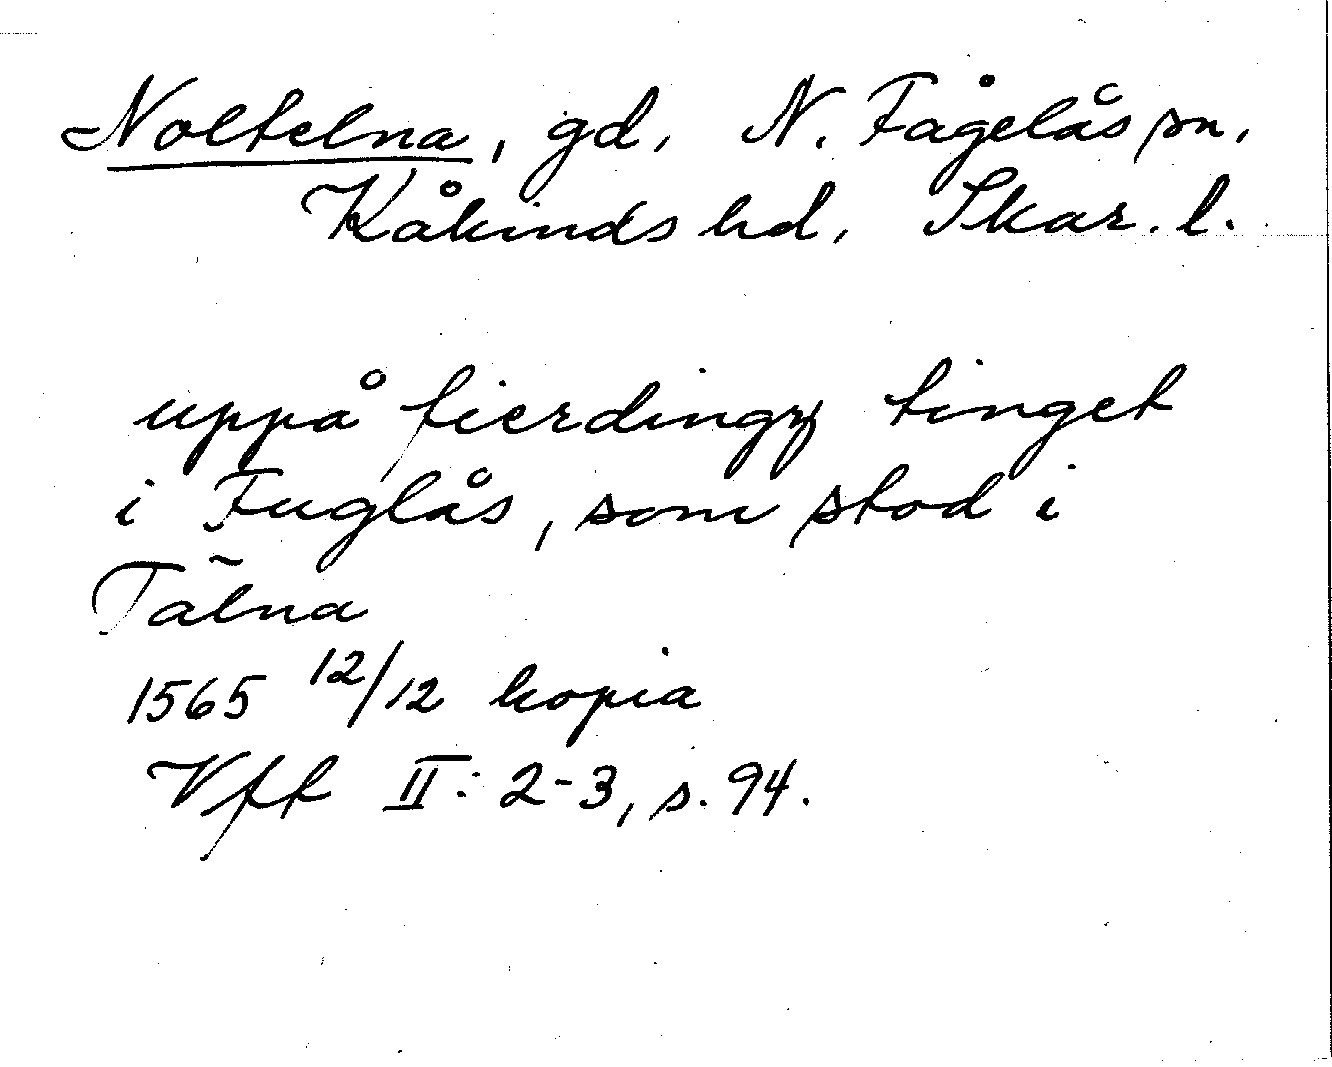 Noltelna, gd, N. Fågelås sn,
Kåkinds hd, Skar. l.
uppå fierdingz tinget
i Fuglås, som stod i
Tälna
1565 12/12 kopia
Vft II: 2-3, s. 94.